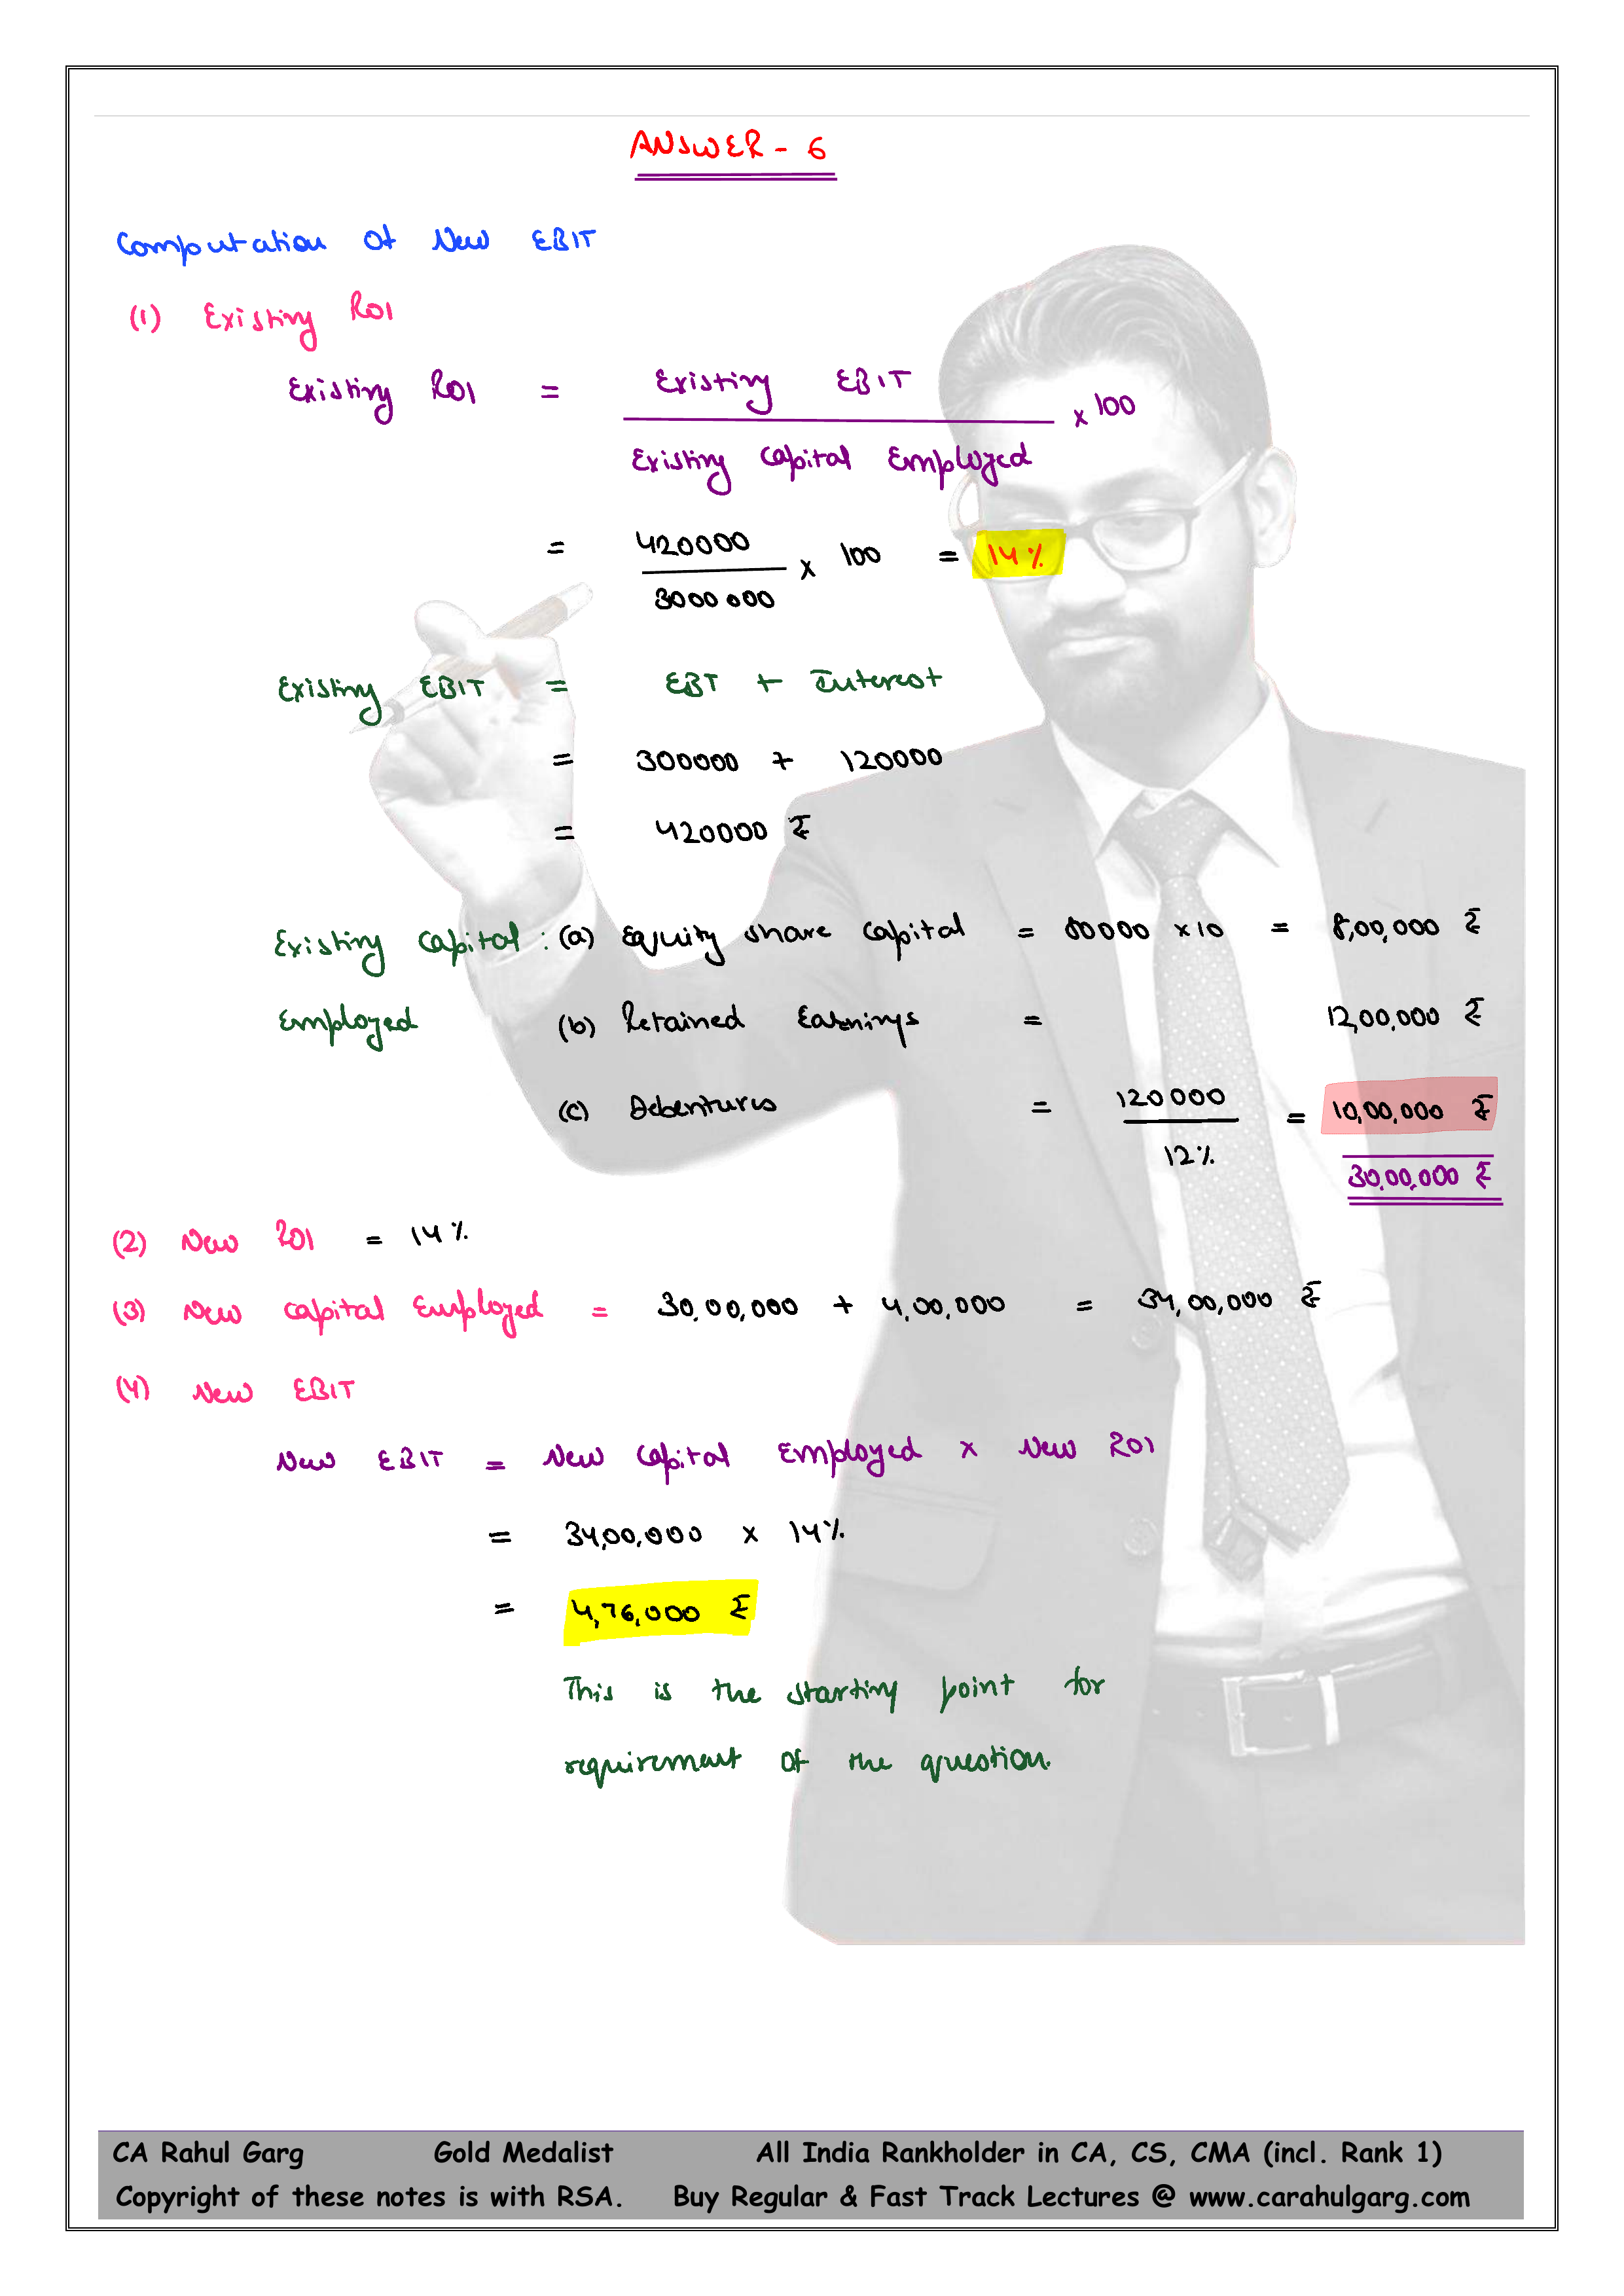 ANSWER - 6
Computation of New EBIT
(1) Existing ROI
Existing ROI = Existing EBIT / Existing Capital Employed × 100
= 420000 / 3000000 × 100 = 14%
Existing EBIT = EBT + Interest
= 300000 + 120000
= 420000 ₹
Existing Capital : (a) Equity share Capital = 80000 × 10 = 8,00,000 ₹
Employed (b) Retained Earnings = 12,00,000 ₹
(c) Debentures = 120000 / 12% = 10,00,000 ₹
30,00,000 ₹
(2) New ROI = 14%
(3) New Capital Employed = 30,00,000 + 4,00,000 = 34,00,000 ₹
(4) New EBIT
New EBIT = New Capital Employed × New ROI
= 34,00,000 × 14%
= 4,76,000 ₹
This is the starting point for
requirement of the question.
CA Rahul Garg Gold Medalist All India Rankholder in CA, CS, CMA (incl. Rank 1)
Copyright of these notes is with RSA. Buy Regular & Fast Track Lectures @ www.carahulgarg.com